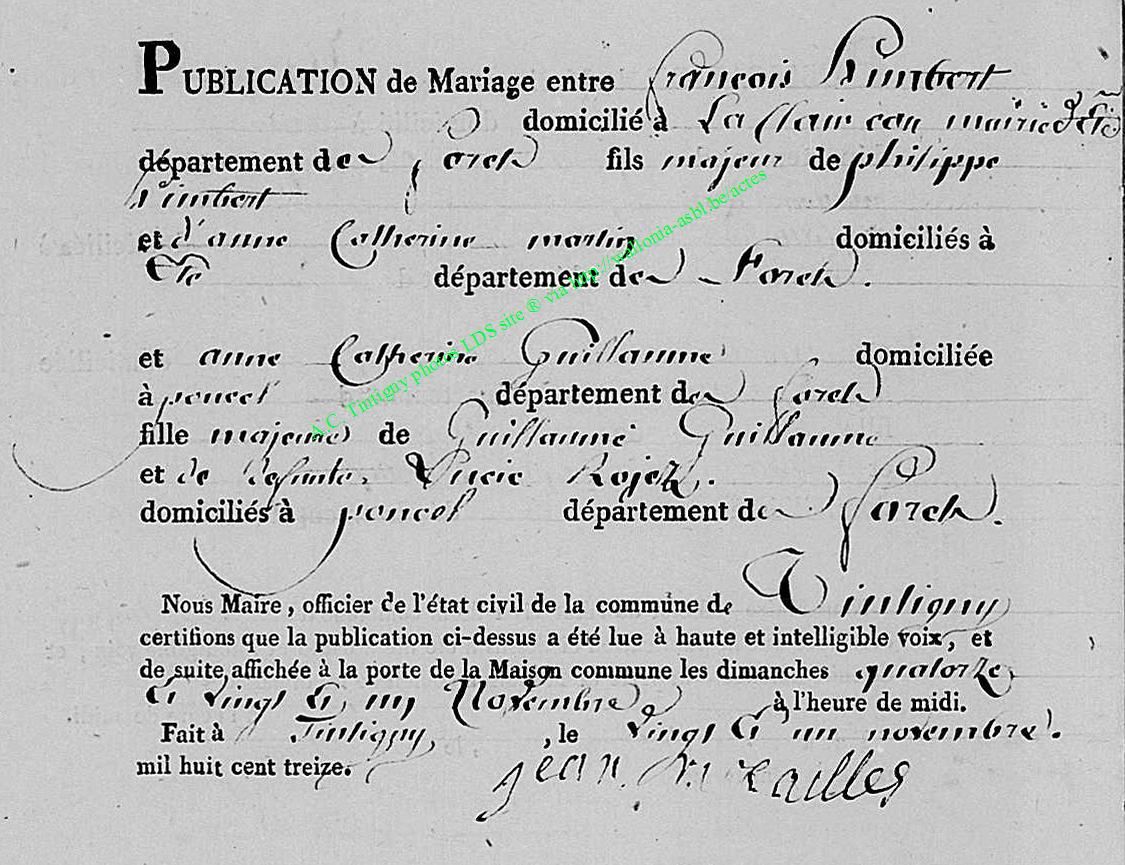 PUBLICATION de Mariage entre françois himbert
domicilié à La Clair eau mairie d'Ete
département de forets fils majeur de philippe
himbert
et d'anne Catherine martin domiciliés à
Ete département de Forets.
et anne Catherine Guillaume domiciliée
à poncel département de forets
fille majeure de Guillaume Guillaume
et de defunte Lucie
domiciliés à poncel département de forets.
Nous Maire, officier de l'état civil de la commune de Tintigny
certifions que la publication ci-dessus a été lue à haute et intelligible voix, et
de suite affichée à la porte de la Maison commune les dimanches quatorze
et vingt et un Novembre à l'heure de midi.
Fait à Tintigny, le vingt et un novembre.
mil huit cent treize.
jean
A.C. Tintigny photos LDS site ® via http://wallonia-asbl.be/actes